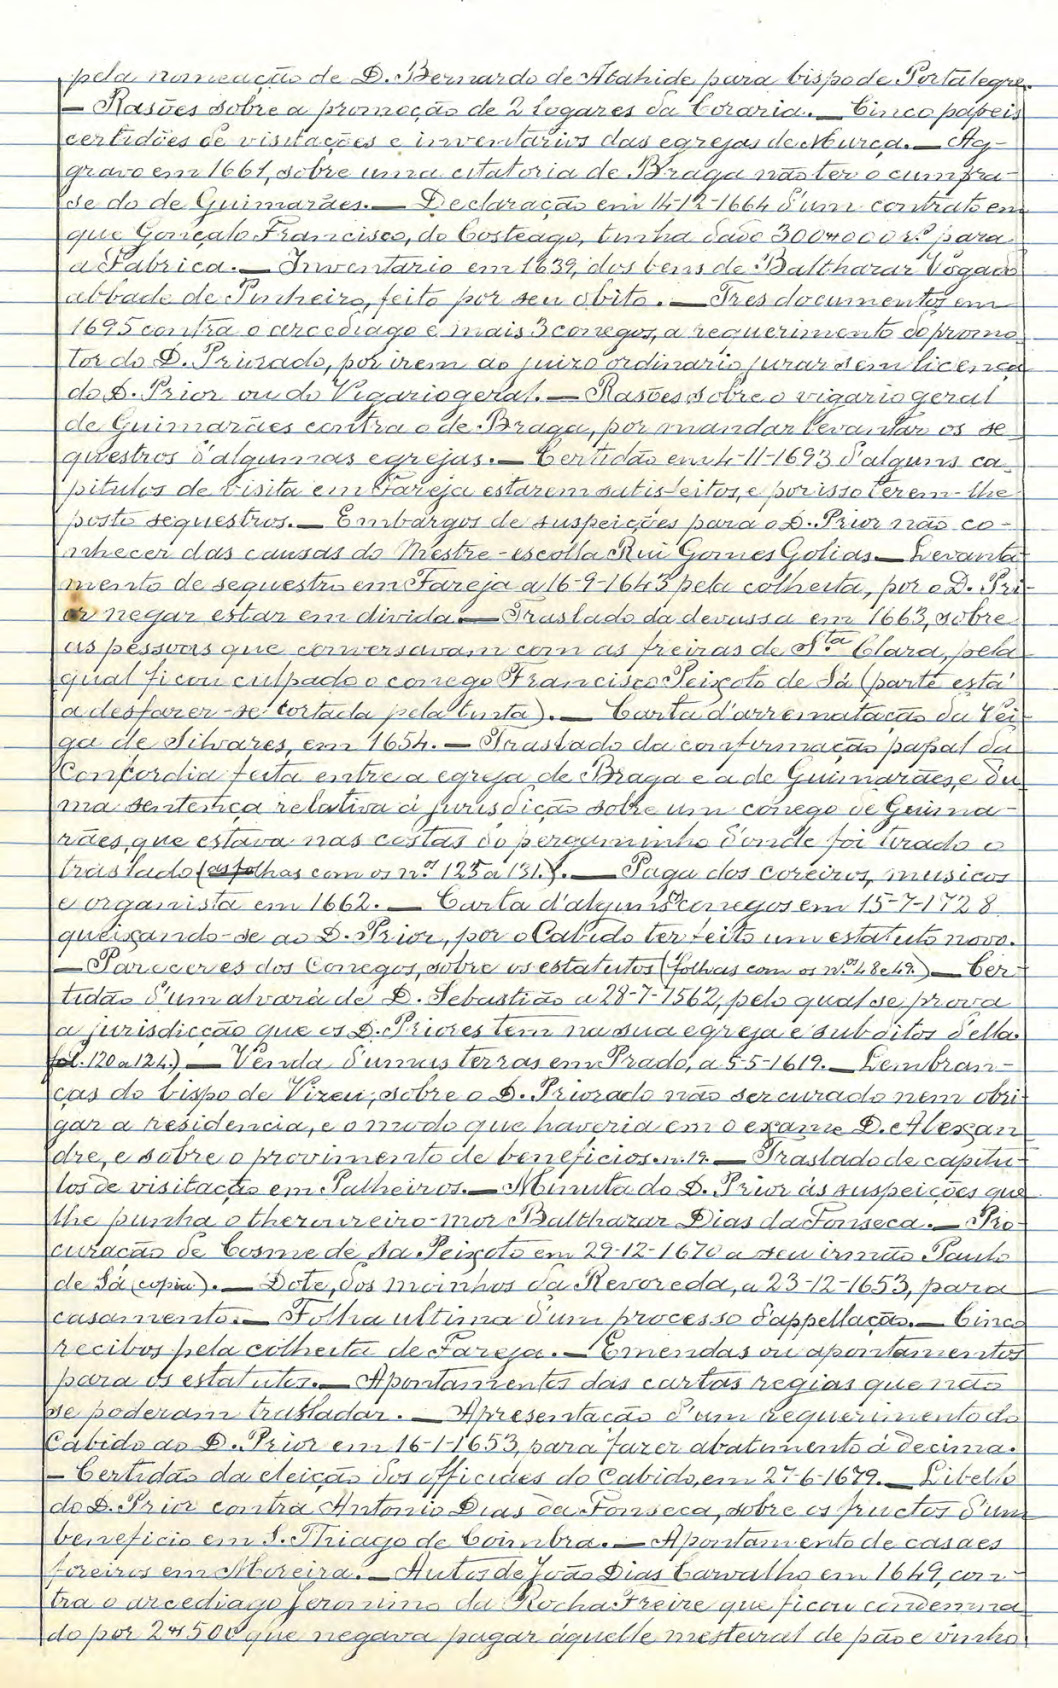 pela nomeação de D. Bernardo de Atahide para bispo de Portalegre.
— Rasões sobre a promoção de 2 logares da Coraria. — Cinco papeis
certidões de visitações e inventarios das egrejas de Murça. — Ag-
gravo em 1661, sobre uma citatoria de Braga não ter o cumpra-
se do de Guimarães. — Declaração em 14-12-1664 d'um contrato em
que Gonçalo Francisco, do Costeago, tinha dado 300$000 r.s para
a Fabrica. — Inventario em 1639, dos bens de Balthazar Vogado
abbade de Pinheiro, feito por seu obito. — Tres documentos em
1695 contra o arcediago e mais 3 conegos, a requerimento do promo-
tor do D. Priorado, por irem ao juizo ordinario jurar sem licença
do D. Prior ou do Vigario geral. — Rasões sobre o vigario geral
de Guimarães contra o de Braga, por mandar levantar os se-
questros d'algumas egrejas. — Certidão em 4-11-1693 d'alguns ca-
pitulos de visita em Fareja estarem satisfeitos, e por isso terem-lhe
posto sequestros. — Embargos de suspeições para o D. Prior não co-
nhecer das causas do Mestre-escolla Rui Gomes Golias. — Levanta-
mento de sequestro em Fareja a 16-9-1643 pela colheita, por o D. Pri-
or negar estar em divida. — Traslado da devassa em 1663, sobre
as pessoas que conversavam com as freiras de S.ta Clara, pela
qual ficou culpado o conego Francisco Peixoto de Sá (parte está
a desfazer-se cortada pela tinta). — Carta d'arrematação da Vei-
ga de Silvares, em 1654. — Traslado da confirmação papal da
Concordia feita entre a egreja de Braga e a de Guimarães, e d'u-
ma sentença relativa á jurisdição sobre um conego de Guima-
rães, que estava nas costas do pergaminho d'onde foi tirado o
traslado (as folhas com os n.os 125 a 131.). — Paga dos coreiros, musicos
e organista em 1662. — Carta d'alguns conegos em 15-7-1728
queixando-se ao D. Prior, por o Cabido ter feito um estatuto novo.
— Pareceres dos Conegos, sobre os estatutos (folhas com os n.os 48 e 49.) — Cer-
tidão d'um alvará de D. Sebastião a 28-7-1562, pelo qual se prova
a jurisdicção que os D. Priores tem na sua egreja e subditos d'ella.
fol. 120 a 124.) — Venda d'umas terras em Prado, a 5-5-1619. — Lembran-
ças do bispo de Vizeu, sobre o D. Priorado não ser curado nem obri-
gar a residencia, e o modo que haveria em o exame D. Alexan-
dre, e sobre o provimento de beneficios. n. 19. — Traslado de capitu-
los de visitação em Palheiros. — Minuta do D. Prior ás suspeições que
lhe punha o thezoureiro-mor Balthazar Dias da Fonseca. — Pro-
curação de Cosme de Sa Peixoto em 29-12-1670 a seu irmão Paulo
de Sá (copia). — Dote, dos moinhos da Revoreda, a 23-12-1653, para
casamento. — Folha ultima d'um processo d'appellação. — Cinco
recibos pela colheita de Fareja. — Emendas ou apontamentos
para os estatutos. — Apontamentos das cartas regias que não
se poderam trasladar. — Apresentação d'um requerimento do
Cabido ao D. Prior em 16-1-1653, para fazer abatimento á decima.
— Certidão da eleição dos officiaes do Cabido, em 27-6-1679. — Libello
do D. Prior contra Antonio Dias da Fonseca, sobre os fructos d'um
beneficio em S. Thiago de Coimbra. — Apontamento de casaes
foreiros em Moreira. — Autos de João Dias Carvalho em 1649, con-
tra o arcediago Jeronimo da Rocha Freire que ficou condemna-
do por 2$500 que negava pagar áquelle mesteiral de pão e vinho.